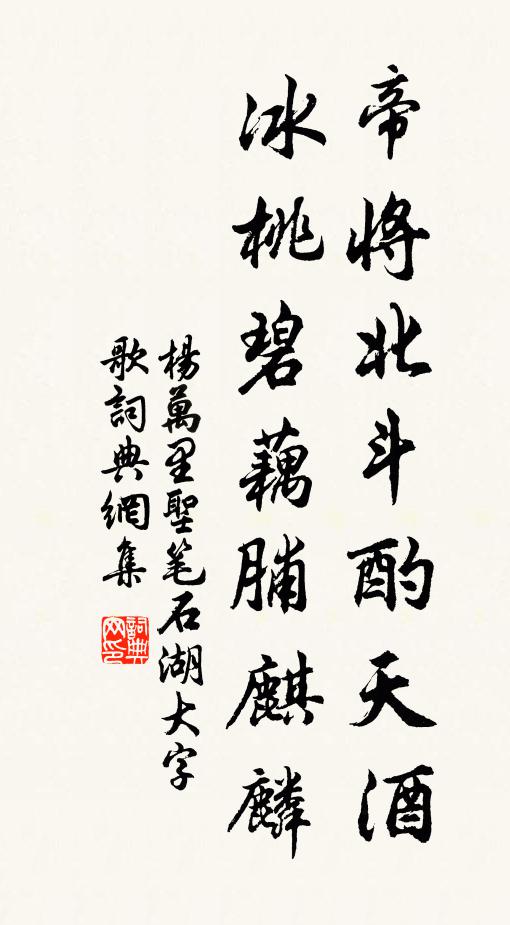 帝將北斗酌天酒
冰桃碧藕脯麒麟
楊萬里聖笔石湖大字
歌詞典網集
詞典
网印